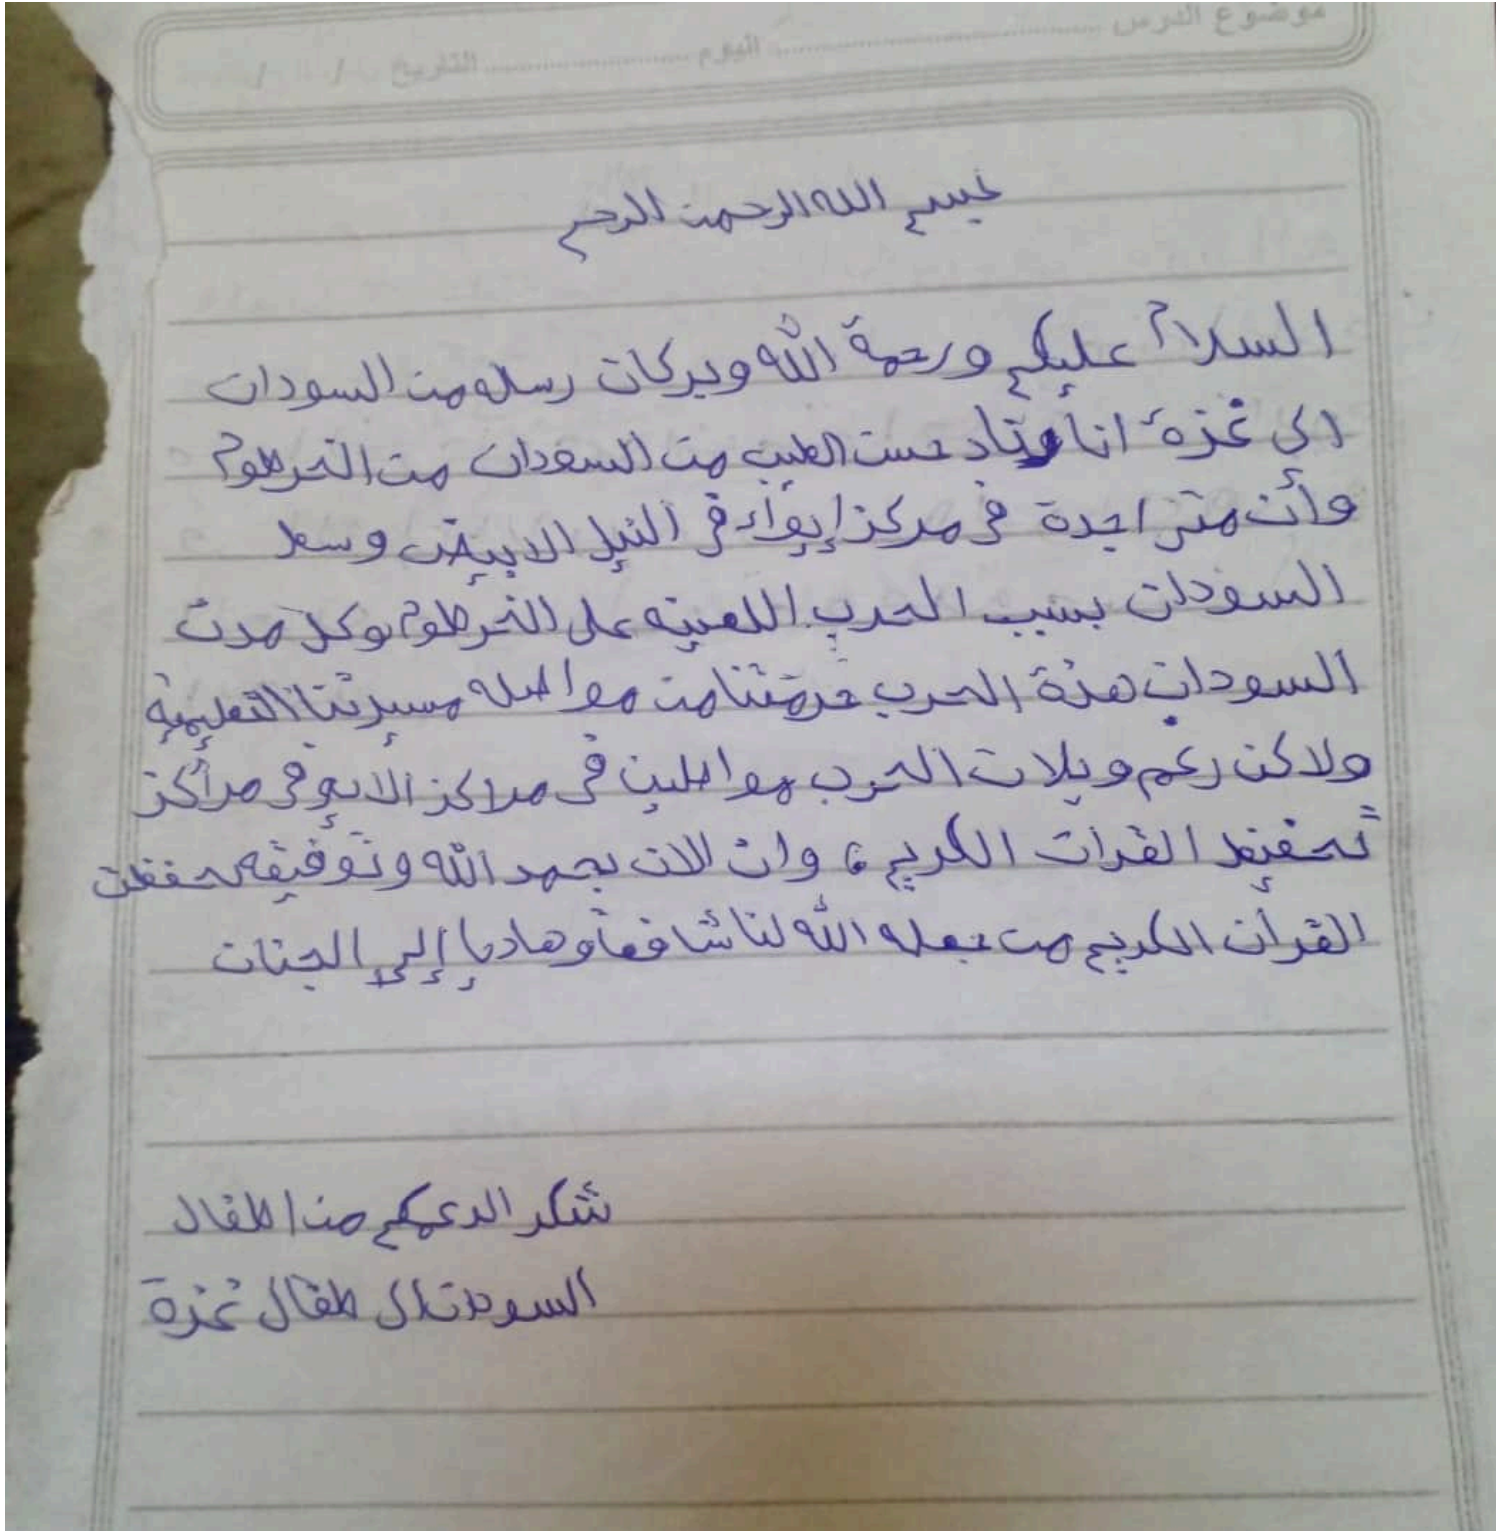 موضوع الدرس ........ اليوم ........ التاريخ / /
بسم الله الرحمن الرحيم
السلام عليكم ورحمة الله وبركات رساله من السودان
الى غزة انا وتاد حسن الطيب من السودان من الخرطوم
وأن متراجدة في مركز إيواء في النيل الابيض وسط
السودان بسبب الحرب اللعينه على الخرطوم وكل مدن
السودان هذة الحرب حرمتنا من مواصله مسيرتنا التعليميه
ولاكن رغم ويلات الحرب مواصلين في مراكز الايو في مراكز
تحفيظ القران الكريم، وان الان بحمد الله وتوفيقه حفظت
القرأن الكريم من جعله الله لنا شافعا وهاديا إلى الجنات
شكر الدعمكم من اطفال
السودان ال طفال غزة